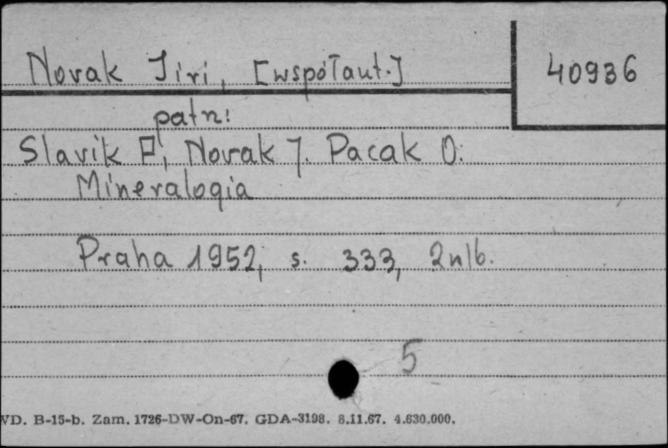 Novak Jiri, [współaut.]
40936
patrz:
Slavik F, Novak J. Pacak O.
Mineralogia
Praha 1952, s. 333, 2nlb.
5
VD. B-15-b. Zam. 1726-DW-On-67. GDA-3198. 8.11.67. 4.630.000.